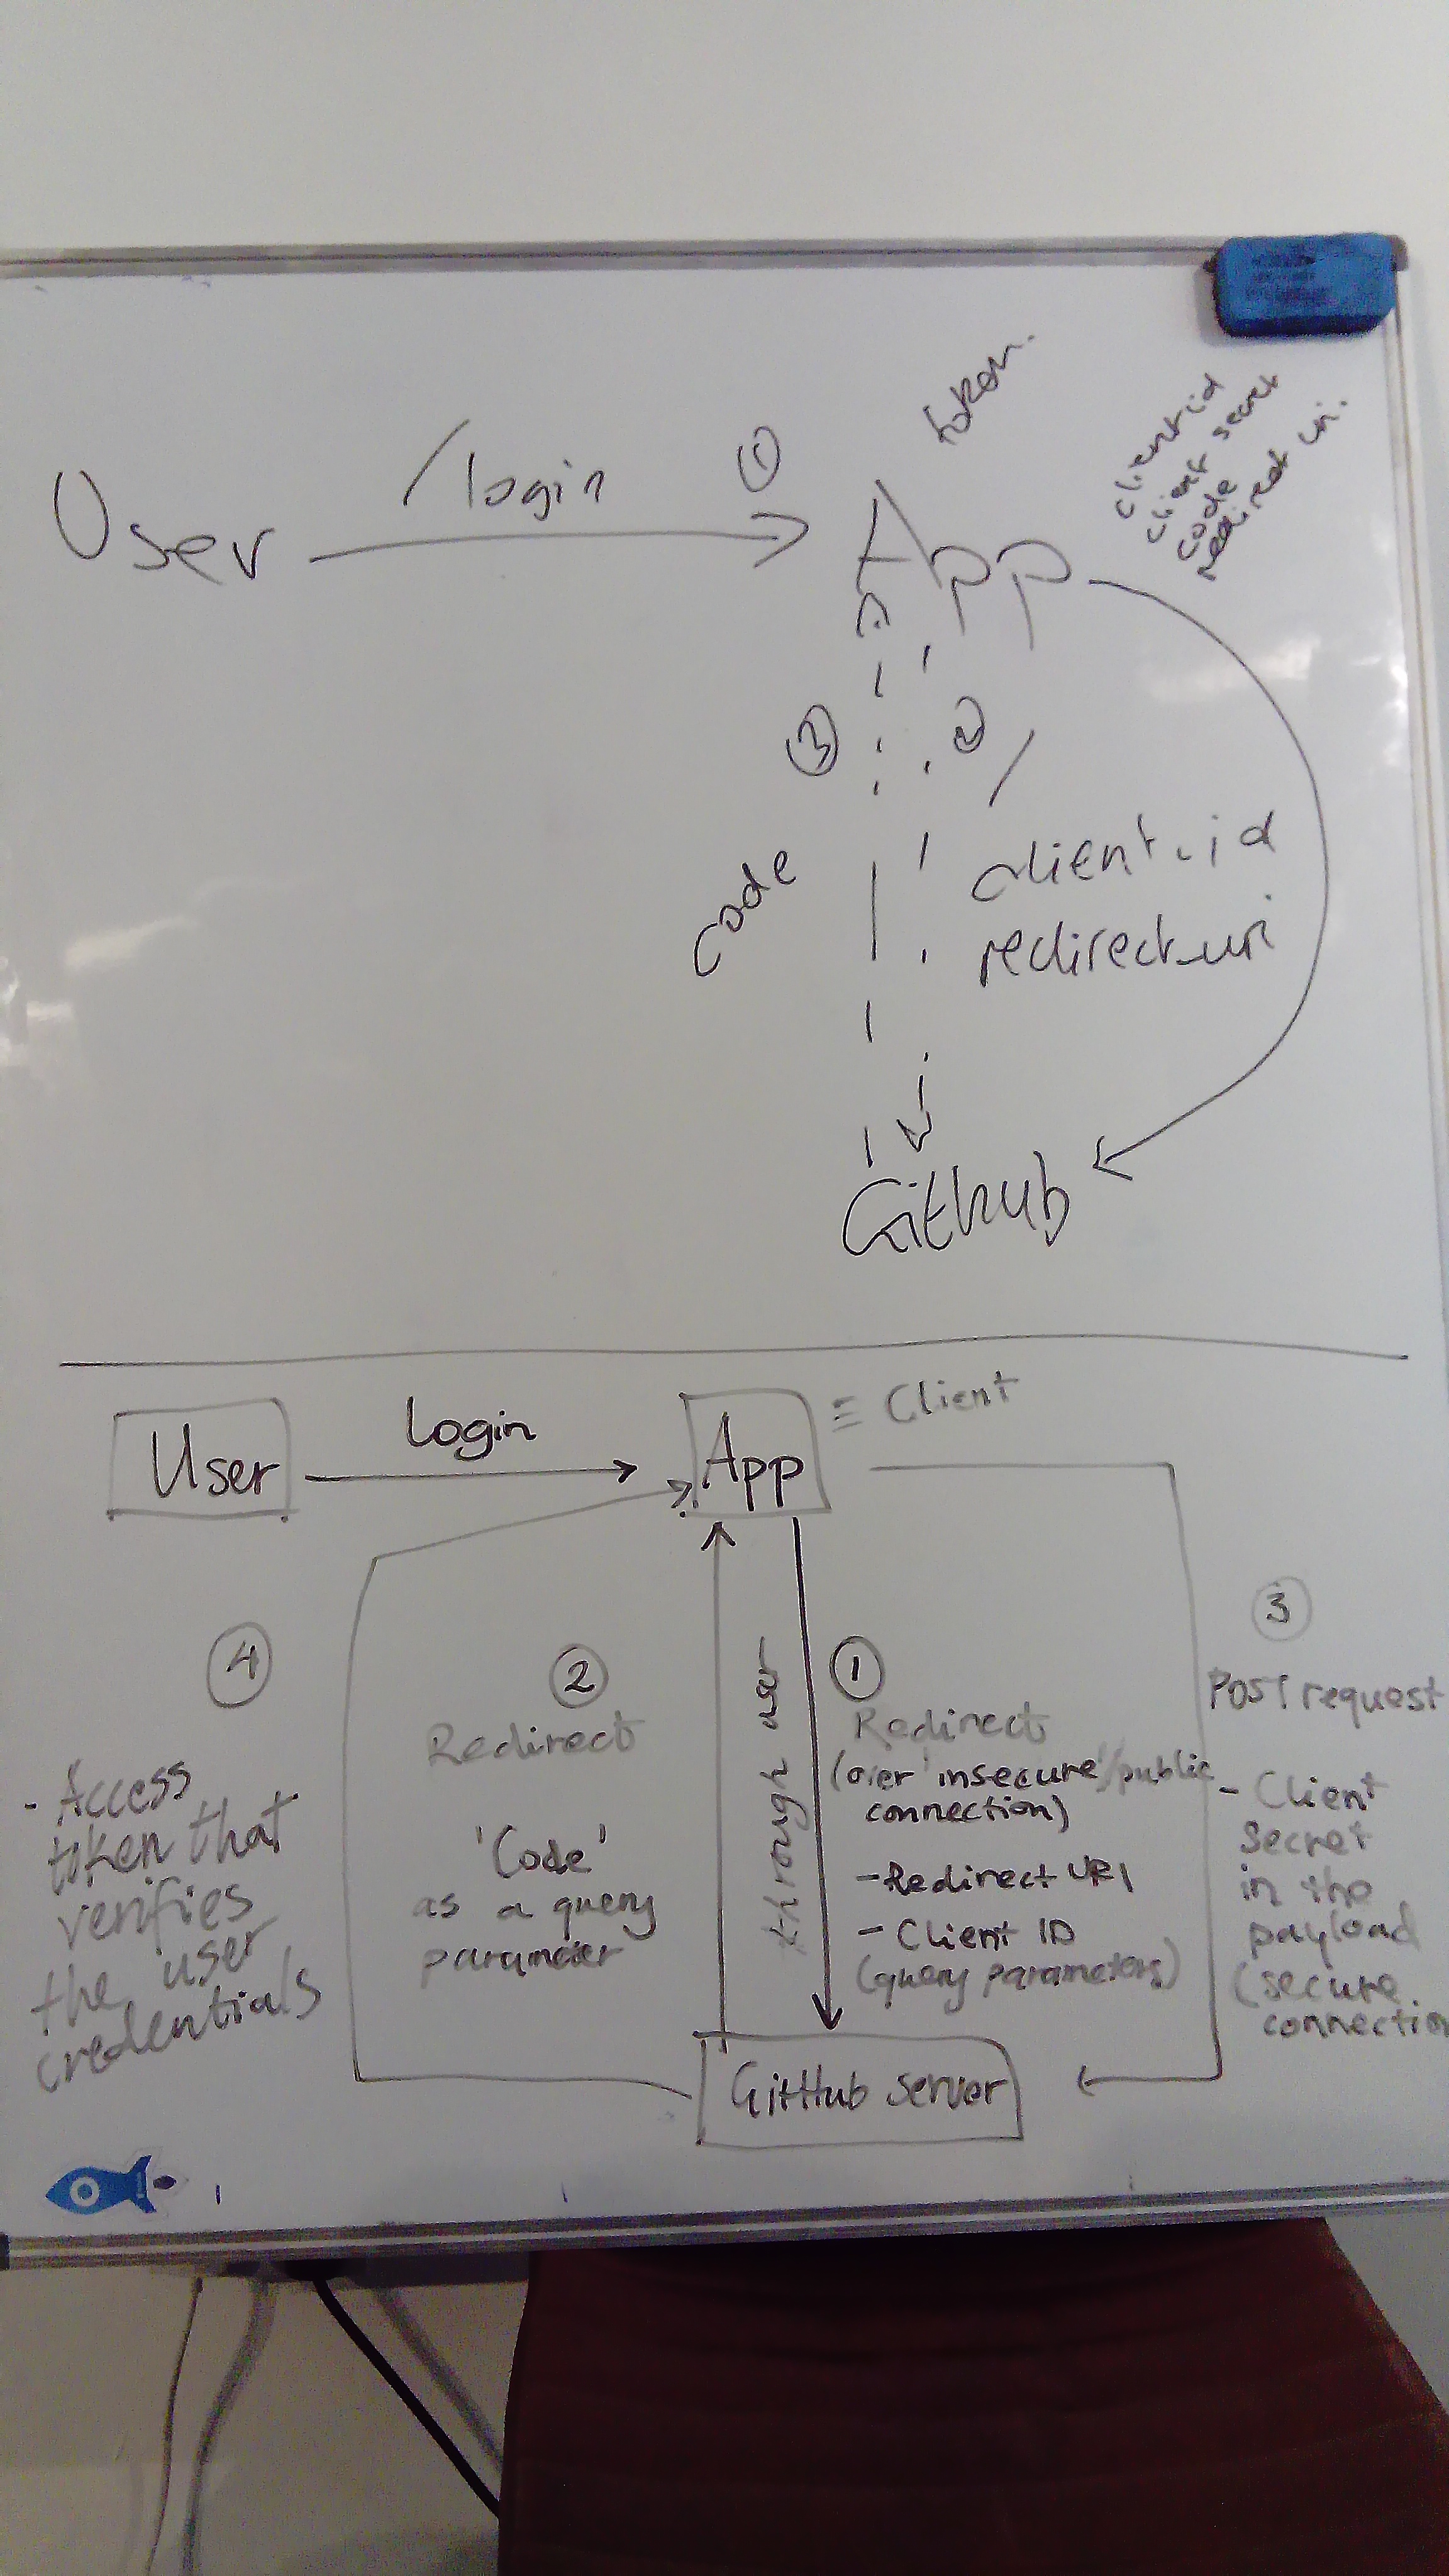 token.
client id
client secret
code
redirect uri.
User
/login
1
App
3
2
/
code
client_id
redirect_uri
Github
User
Login
App
≡ Client
4
- Access
token that
verifies
the user
credentials
2
Redirect
'Code'
as a query
parameter
through user
1
Redirect
(over 'insecure'/public
connection)
- Redirect URI
- Client ID
(query parameters)
3
POST request
- Client
secret
in the
payload
(secure
connection
GitHub server